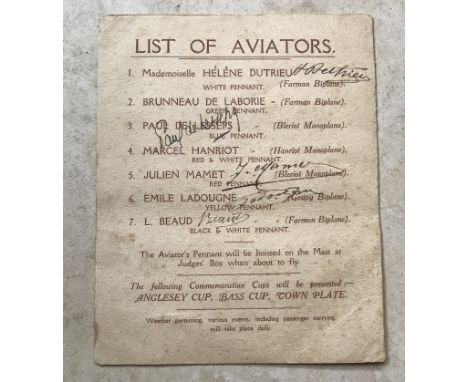 LIST OF AVIATORS.
1. Mademoiselle HÉLÈNE DUTRIEU
(Farman Biplane).
WHITE PENNANT.
2. BRUNNEAU DE LABORIE - (Farman Biplane).
GREEN PENNANT.
3. PAUL DE LESSEPS (Bleriot Monoplane).
BLUE PENNANT.
4. MARCEL HANRIOT - (Hanriot Monoplane).
RED & WHITE PENNANT.
5. JULIEN MAMET (Bleriot Monoplane).
RED PENNANT.
6. EMILE LADOUGNE (Goupy Biplane).
YELLOW PENNANT.
7. L. BEAUD Beaud (Farman Biplane).
BLACK & WHITE PENNANT.
The Aviator's Pennant will be hoisted on the Mast at
Judges' Box when about to fly.
The following Commemoration Cups will be presented :—
ANGLESEY CUP, BASS CUP, TOWN PLATE.
Weather permitting, various events, including passenger carrying,
will take place daily.